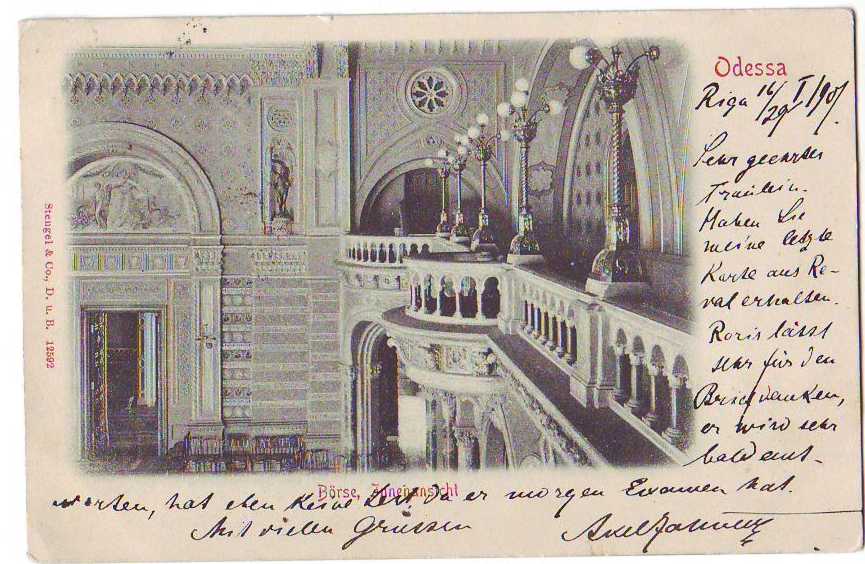 Odessa
Riga 16/29 I/901.
Sehr geehrtes
Fräulein.
Haben Sie
meine letzte
Karte aus Re-
val erhalten.
Boris lässt
sehr für den
Brief danken,
er wird sehr
bald ant-
worten, hat eben keine Zeit, da er morgen Examen hat.
Mit vielen Grüssen
Axel
Börse, Innenansicht
Stengel & Co., D. u. B. 12592